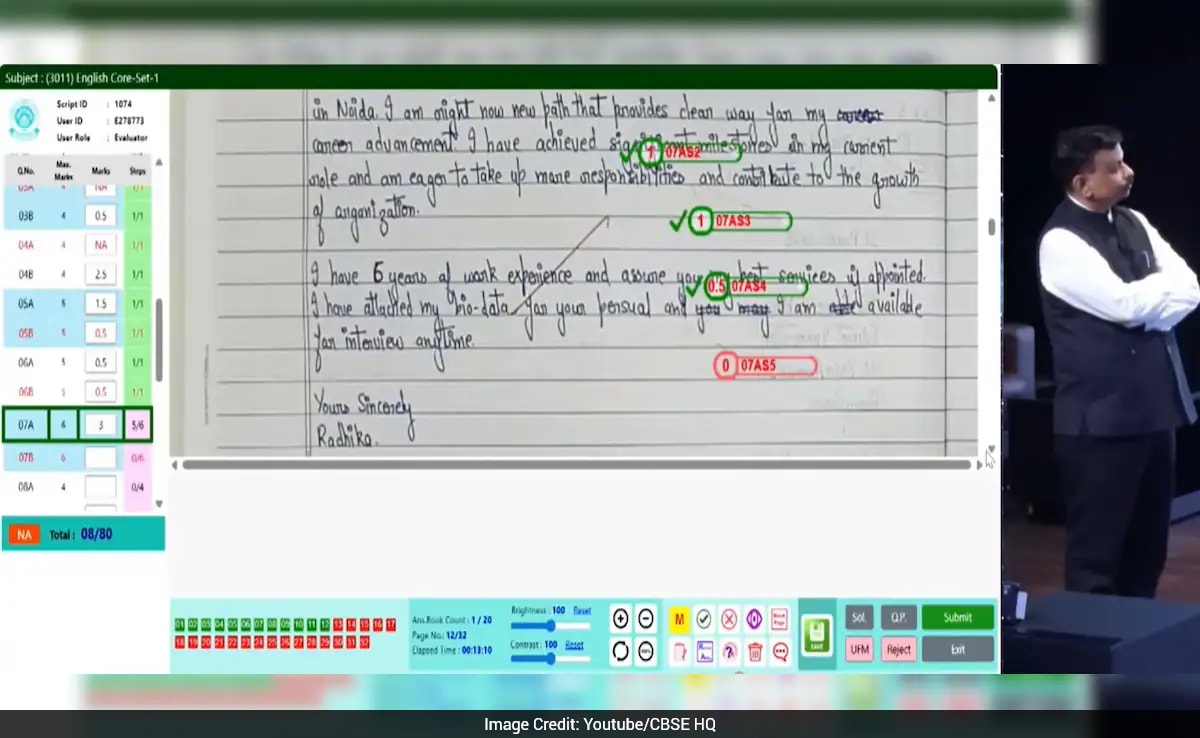 Subject : (3011) English Core-Set-1
Script ID : 1074
User ID : E278773
User Role : Evaluator
Q.No. Max. Marks Marks Steps
03A NA 1/1
03B 4 0.5 1/1
04A 4 NA 1/1
04B 4 2.5 1/1
05A 5 1.5 1/1
05B 5 0.5 1/1
06A 5 0.5 1/1
06B 5 0.5 1/1
07A 6 3 5/6
07B 6 0/6
08A 4 0/4
NA Total : 08/80
in Noida. I am right now new path that provides clear way for my career
career advancement. I have achieved milestones in my current
1 07AS2
role and am eager to take up more responsibilities and contribute to the growth
of organization.
1 07AS3
I have 6 years of work experience and assure you my best services if appointed.
0.5 07AS4
I have attached my bio-data for your persual and you may I am available
for interview anytime.
0 07AS5
Yours Sincerely
Radhika.
01 02 03 04 05 06 07 08 09 10 11 12 13 14 15 16 17
18 19 20 21 22 23 24 25 26 27 28 29 30 31 32
Ans.Book Count : 1 / 20
Page No.: 12/32
Elapsed Time : 00:13:10
Brightness : 100 Reset
Contrast : 100 Reset
M
SAVE
Sol. Q.P. Submit
UFM Reject Exit
Image Credit: Youtube/CBSE HQ